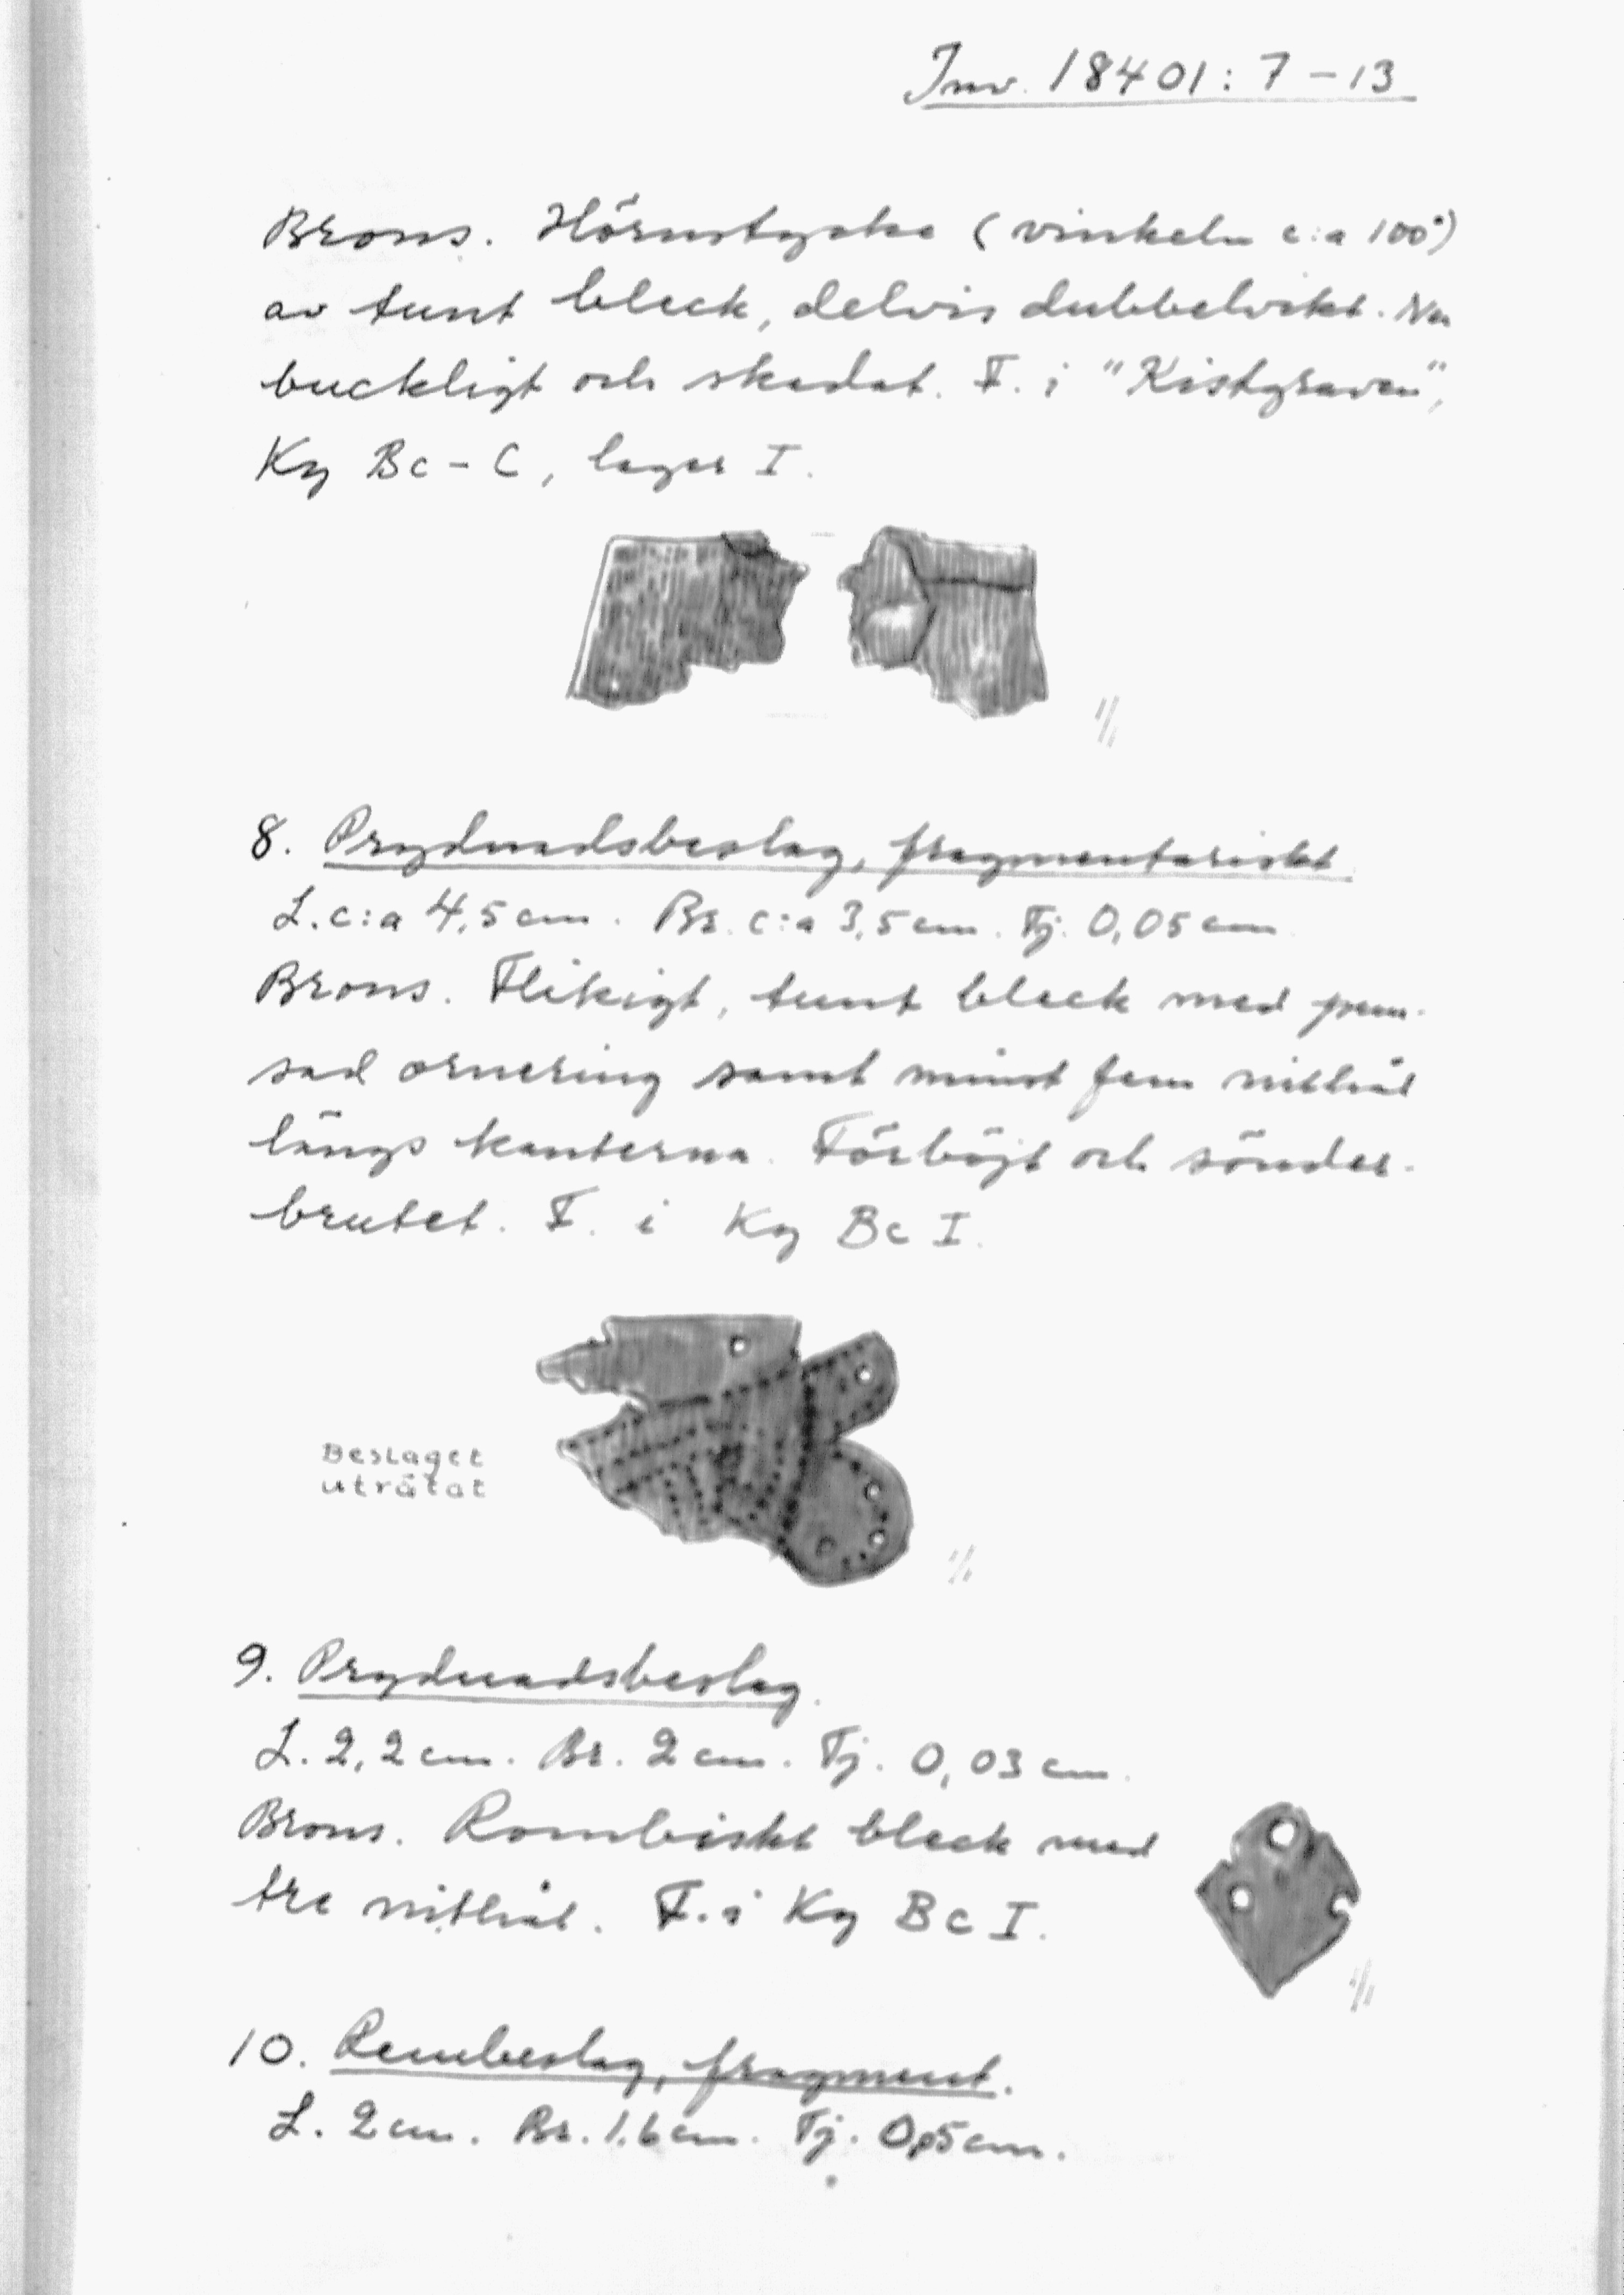 Inv. 18401: 7-13
Brons. Hörnstycke (vinkeln c:a 100°)
av tunt bleck, delvis dubbelvikt. Nu
buckligt och skadat. F. i "Kistgraven",
Kg Bc-C, lager I.
1/1
8. Prydnadsbeslag, fragmentariskt
L. c:a 4,5 cm. Br. c:a 3,5 cm. Tj. 0,05 cm
Brons. Flikigt, tunt bleck med pun-
sad ornering samt minst fem nithål
längs kanterna. Förböjt och sönder-
brutet. F. i Kg Bc I.
Beslaget
uträtat
1/1
9. Prydnadsbeslag.
L. 2,2 cm. Br. 2 cm. Tj. 0,03 cm.
Brons. Rombiskt bleck med
tre nithål. F. i Kg Bc I.
1/1
10. Rembeslag, fragment.
L. 2 cm. Br. 1,6 cm. Tj. 0,05 cm.